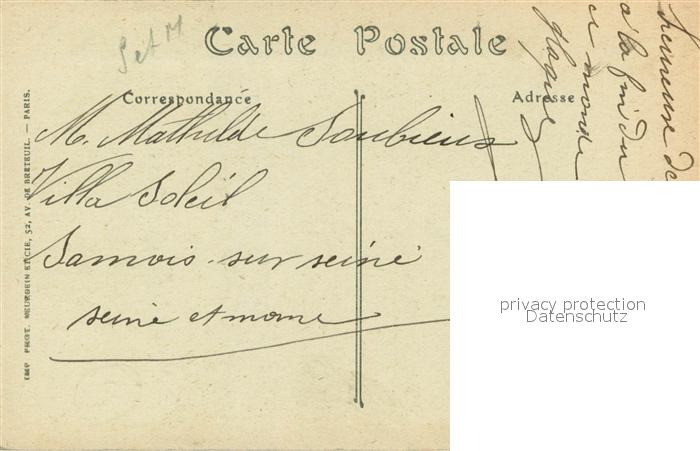 Set M
Carte Postale
Correspondance
Adresse
M. Mathilde Soubiens
Villa Soleil
Samois-sur seine
seine et marne
heureuse de
a la fin du
ce monde
IMP. PHOT. NEURDEIN ET CIE, 52, AV. DE BRETEUIL. — PARIS.
privacy protection
Datenschutz